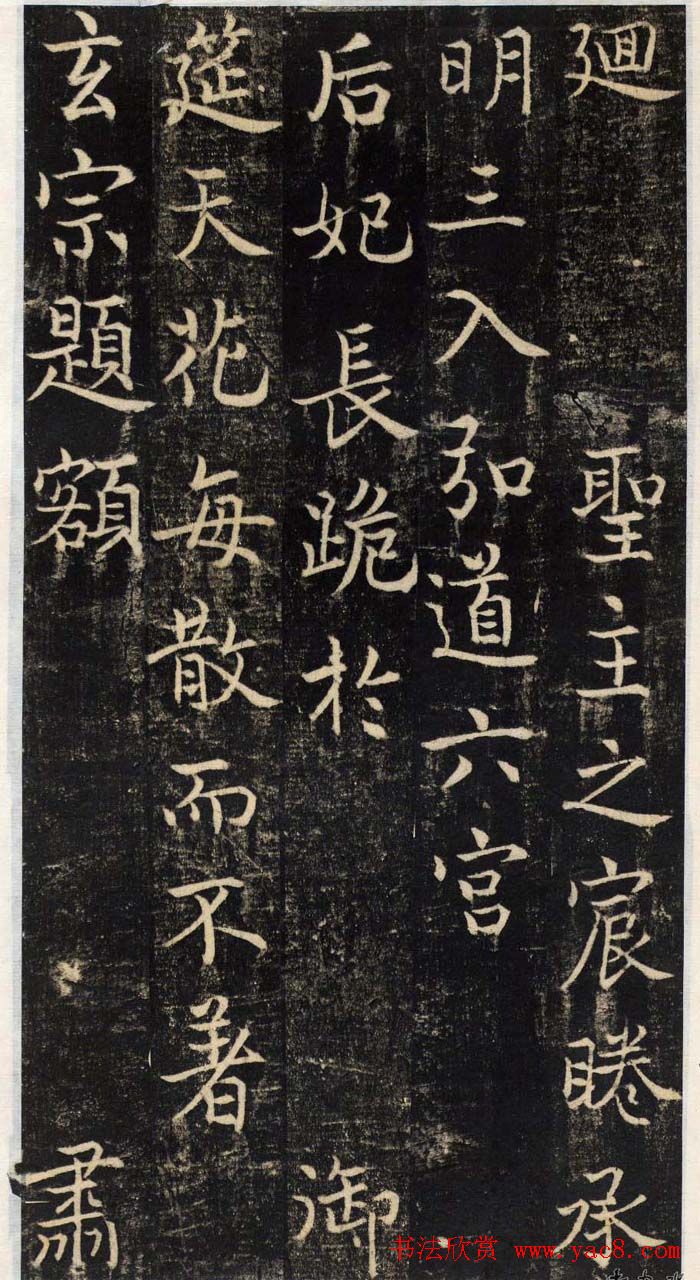 廻 聖主之宸睠承
明三入弘道六宮
后妃長跪於 御
筵天花每散而不著
玄宗題額 肅
书法欣赏 www.yac8.com